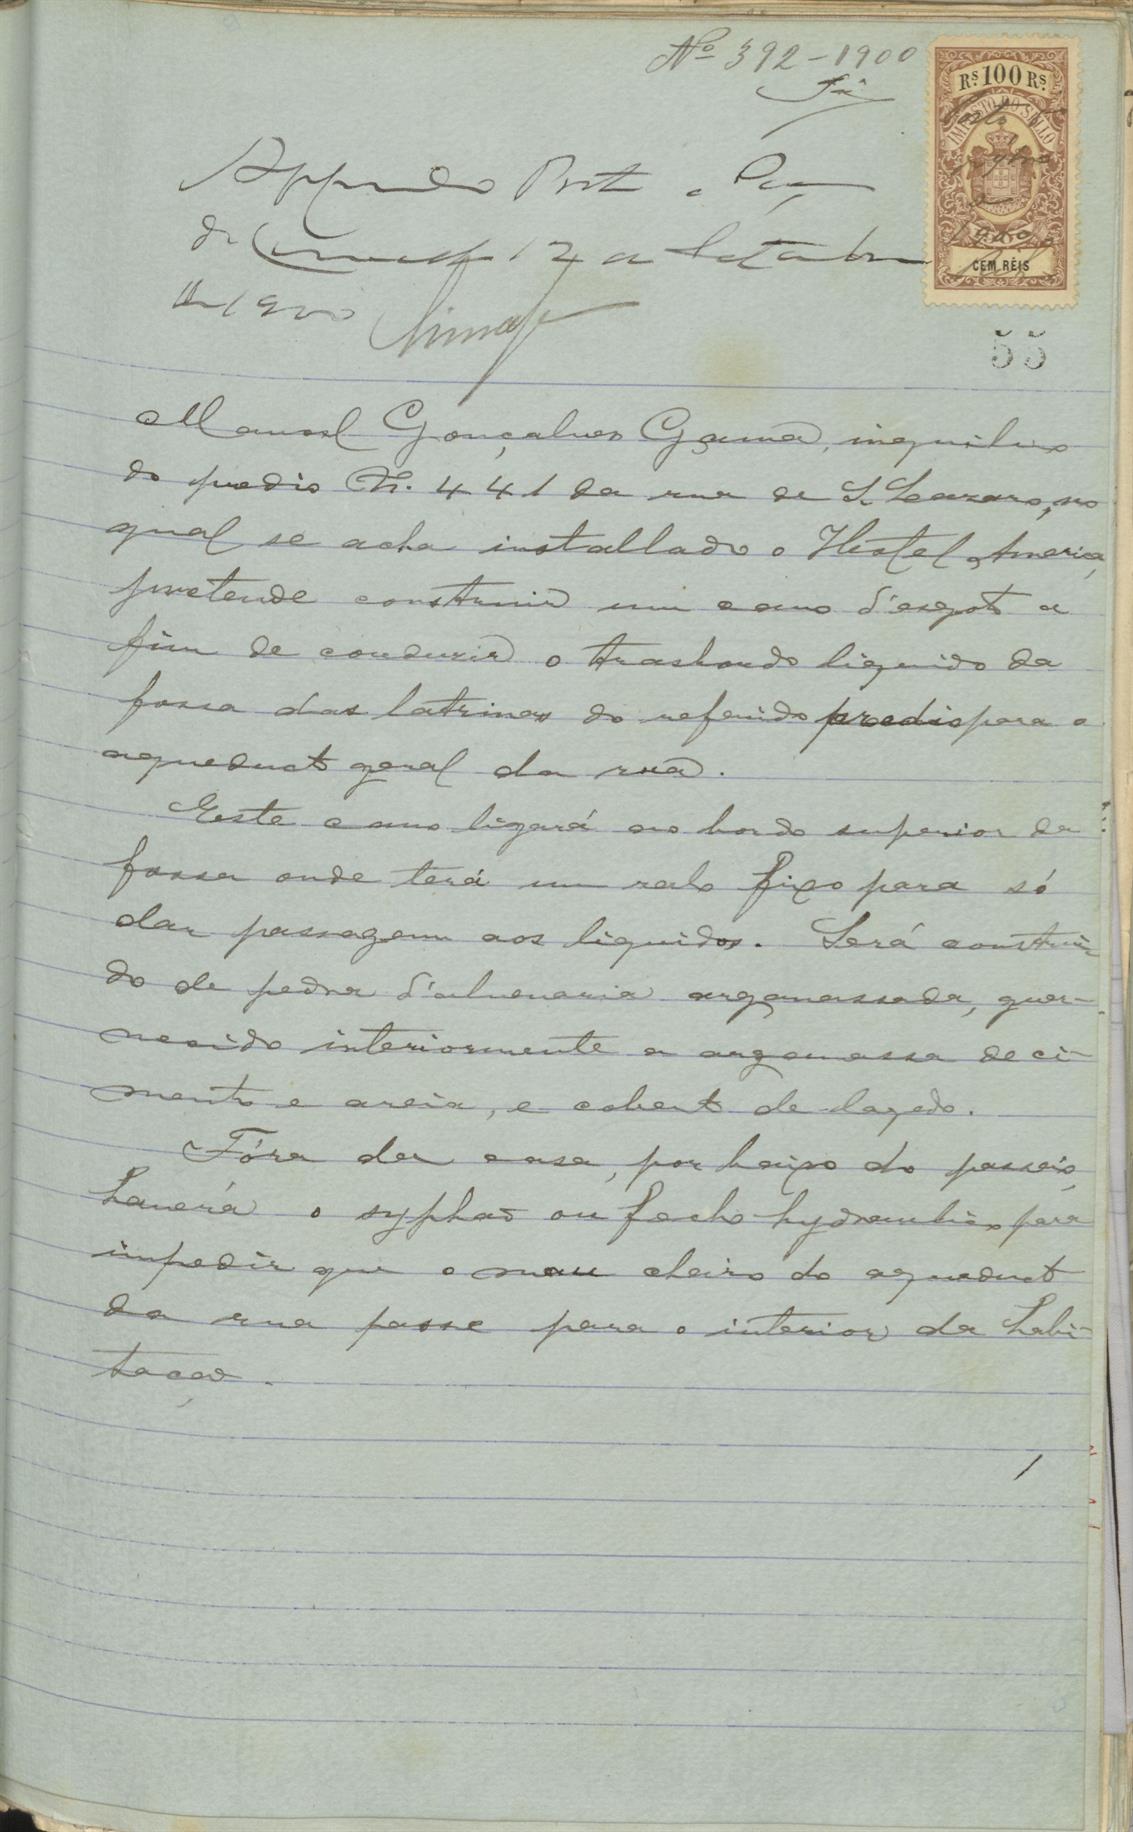 Nº 392-1900
Rs 100 Rs
IMPOSTO DO SELLO
CEM RÉIS
Approvado Porto e Paços
do Concelho 12 de Setembro
de 1900
55
Manoel Gonçalves Gama, inquilino
do predio N. 441 da rua de S. Lazaro, no
qual se acha installado o Hotel America,
pretende construir um cano d'esgoto a
fim de conduzir o trasbordo liquido da
fossa das latrinas do referido predio para o
aqueducto geral da rua.
Este cano ligará no bordo superior da
fossa onde terá um ralo fixo para só
dar passagem aos liquidos. Será construi
do de pedra d'alvenaria argamassada, guar-
necido interiormente a argamassa de ci-
mento e areia, e coberto de lagedo.
Fóra da casa, por baixo do passeio,
haverá o syphão ou fecho hydraulico para
impedir que o mau cheiro do aqueducto
da rua passe para o interior da habi-
tação.